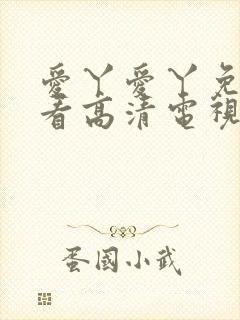 愛丫愛丫免
看高清電視
蛋國小武